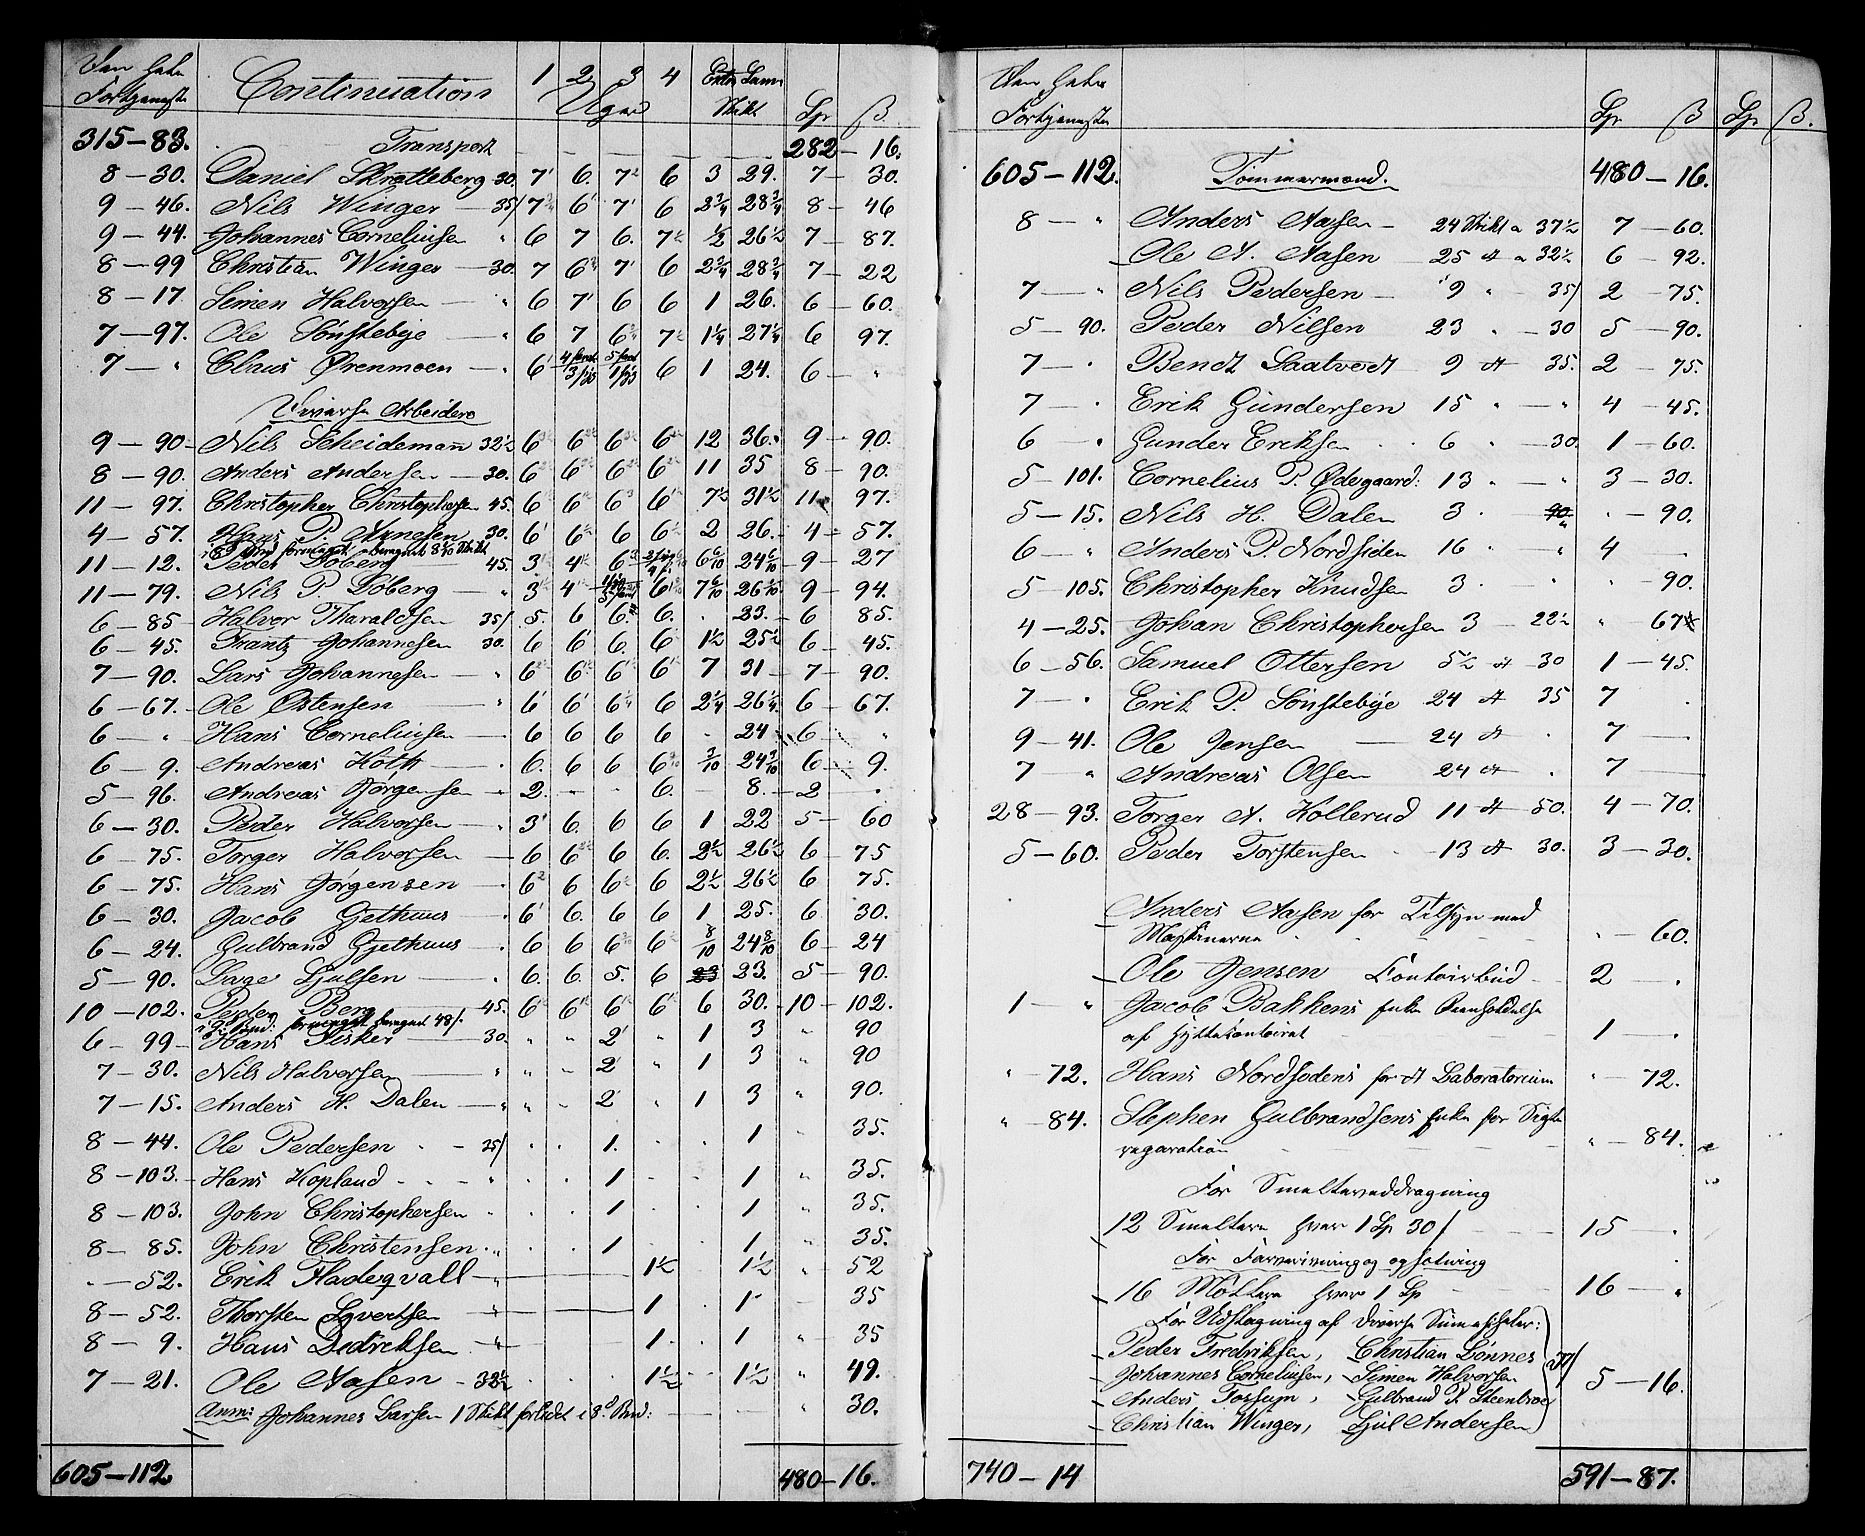 Continuation 1 2 3 4
Uger
Sp ß.
315-83. Transport 282-16.
8-30. Daniel Skratteberg 30. 7 6. 7 6 3 29. 7-30.
9-46. Nils Winger 35/ 7 6 7 6 2 3/4 28 3/4 8-46
9-44. Johannes Corneliusen " 6 7 6. 7 1/2 26 1/2 7-87.
8-99 Christian Winger 30. 7 6 7 6 2 3/4 28 3/4 7-22
8-17 Simen Halvorsen " 6 7 6 6 1 26. 6-60.
7-97. Ole Sønstebye " 6 7 6 7 1 1/4 27 1/4 6 97.
7-" Claus Ørenmoen " 6 6 1 24. 6-"
Diverse Arbeidere
9-90 Nils Scheidemann 32 1/2 6 6 6 6 12 36. 9-90.
8-90. Anders Andersen 30. 6 6 6 6 11 35 8-90.
11-97. Christopher Christophersen 45. 6 6 6 6 7 1/2 31 1/2 11-97.
4-57. Hans P. Arnesen 30. 6 6 6 6 2 26. 4-57.
11-12. Peder Loberg 45. 3 4 6 6 6/10 24 6/10 9-27
11-79. Nils P. Loberg " 3 4 6 7 6/10 26 6/10 9-94.
6-85 Halvor Tharaldsen 35/ 5. 6 6. 6. . 23. 6 85.
6-45. Frantz Johannesen 30. 6 6 6. 6 1 1/2 25 1/2 6-45.
7-90. Lars Johannesen " 6 6 6 6 7 31 7-90.
6-67. Ole Østensen " 6 6 6 6 2 1/4 26 1/4 6-67.
6-" Hans Corneliusen 6 6 6 6 . 24 6 "
6-9. Andreas Hoth 6. 6 6 6 3/10 24 3/10 6 9.
5-96. Andreas Jørgensen " 2. - - 6. - 8. 2-.
6-30. Peder Halvorsen 3 6. 6 6 1 22 5-60
6-75. Torger Halvorsen 6 6 6 6. 2 1/2 26 1/2 6-75
6-75. Hans Jørgensen 6 6 6 6 2 1/2 26 1/2 6 75.
6-30. Jacob Gjethuus 6 6. 6 6 1 25. 6 30.
6-24. Gulbrand Gjethuus 6 6 6 6 8/10 24 8/10 6-24
5-90. Lage Ljulsen 6. 6. 5. 6 23. 5-90.
10-102. Peder Berg 45. 6 6 6 6 6 30. 10-102.
6-99 Hans Fisker 30. " " 2 " 1 3 " 90
7-30. Nils Halvorsen " " - 2 1 3 " 90
7-15. Anders H. Dalen " " - 2 " 1 3 " 90.
8-44. Ole Pedersen 35/ . . 1. . . 1 " 35.
8-103. Hans Kopland " 1 1 35.
8-103. John Christophersen 1 1 35.
8-85. John Christensen 1 1 " 35.
"-52. Erik Fladeqvall 1 1/2 1 1/2 " 52
8-52. Thorsten Syvertsen 1 1 35
8-9. Hans Didriksen 1. 1 " 35
7-21. Ole Aasen 32 1/2 1 1/2 1 1/2 " 49.
Anm: Johannes Larsen 1 Skikt 30.
605-112 480-16.
Sp ß Sp ß.
605-112. Tømmermænd. 480-16.
8-" Anders Aasen 24 Skikt a 37 1/2 7-60.
Ole A. Aasen 25 a 32 1/2 6-92.
7-" Nils Pedersen 9 " 35/ 2-75.
5-90. Peder Nilsen 23 " 30 5-90.
7-" Bendt Saatvedt 9 35. 2-75.
7-" Erik Gundersen 15 " " 4-45.
6-" Gunder Eriksen 6 " 30. 1-60.
5-101. Cornelius P. Ødegaard: 13 " " 3-30.
5-15. Nils H. Dalen 3 . "-90.
6-" Anders P. Nordsiden 16 " " 4-
5-105. Christopher Knudsen 3 . " " 90.
4-25. Johan Christophersen 3 22 1/2 " 67
6-56. Samuel Ottersen 5 1/2 30 1-45.
7-" Erik P. Sønstebye 24 35 7 .
9-41. Ole Jensen 24 . 7-
7-" Andreas Olsen 24 . 7-
28-93. Torger A. Kollerud 11 50. 4-70.
5-60. Peder Torstensen 13 30. 3-30.
Anders Aasen for Tilsyn med
Maskinerne "-60.
Ole Jensen Contoirbud 2-.
1-" Jacob Bakkens Enke Reenholdelse
af Hyttekontoiret 1-.
"-72. Hans Nordsodens for Laboratorium "-72.
"-84. Stephen Gulbrandsens Enke for Sigte
reparation "-84.
For Smelteveddragning
12 Smeltere hver 1 Sp 30/ 15 .
For
16 hver 1 Sp 16-"
For af Diverse
Peder Fredriksen, Christian Lønnes
Johannes Corneliusen, Simen Halvorsen
Anders Fossum, Gulbrand P. Steentroe 5-16.
Christian Winger, Ljul Andersen
740-14 591-87.